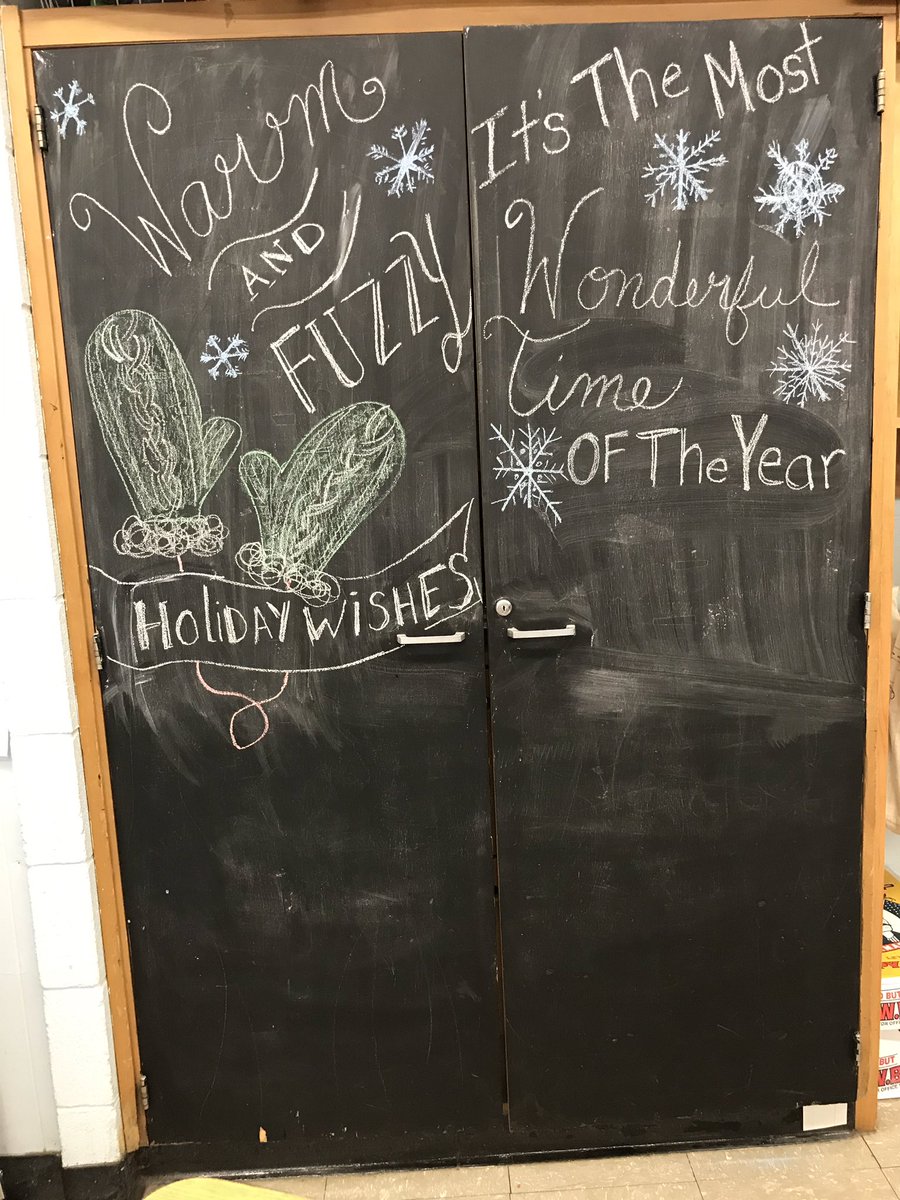 Warm
AND
FUZZY
HOLIDAY WISHES
It's The Most
Wonderful
Time
OF The Year
BUT
BUT